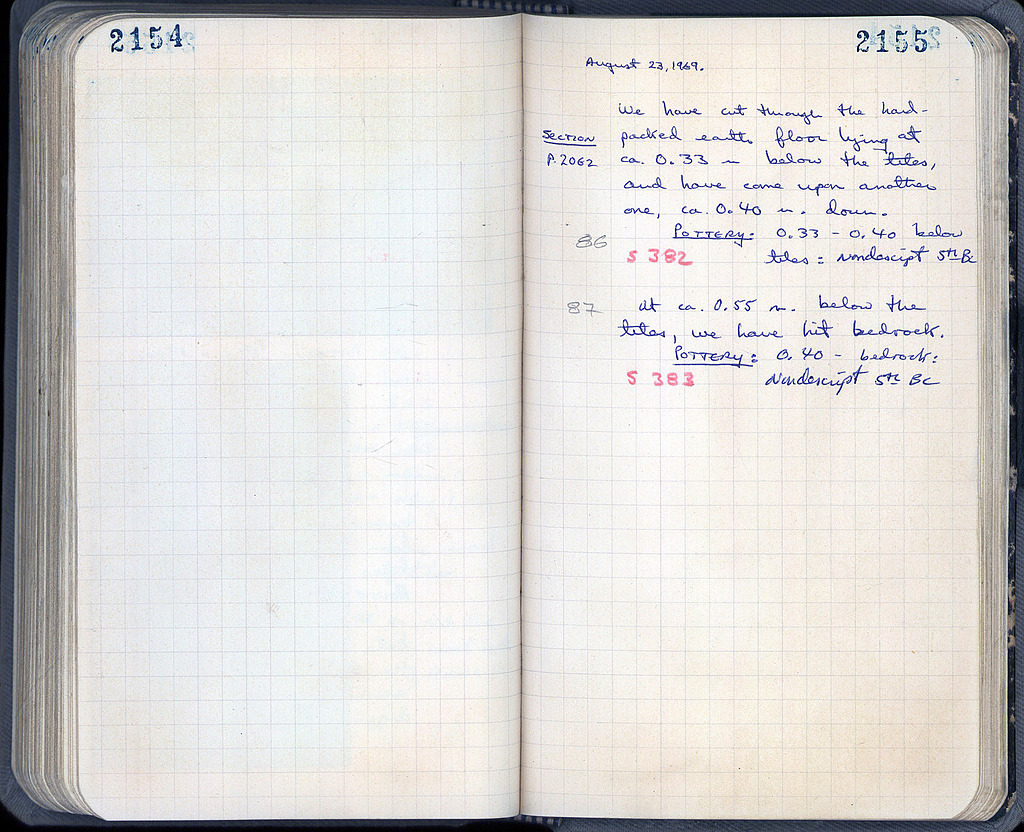 2154
2155
August 23, 1969.
We have cut through the hard-
SECTION packed earth floor lying at
P. 2062 ca. 0.33 m below the tiles,
and have come upon another
one, ca. 0.40 m. down.
POTTERY: 0.33 - 0.40 below
86
S 382 tiles = nondescript 5th BC
87 At ca. 0.55 m. below the
tiles, we have hit bedrock.
POTTERY: 0.40 - bedrock:
S 383 Nondescript 5th BC